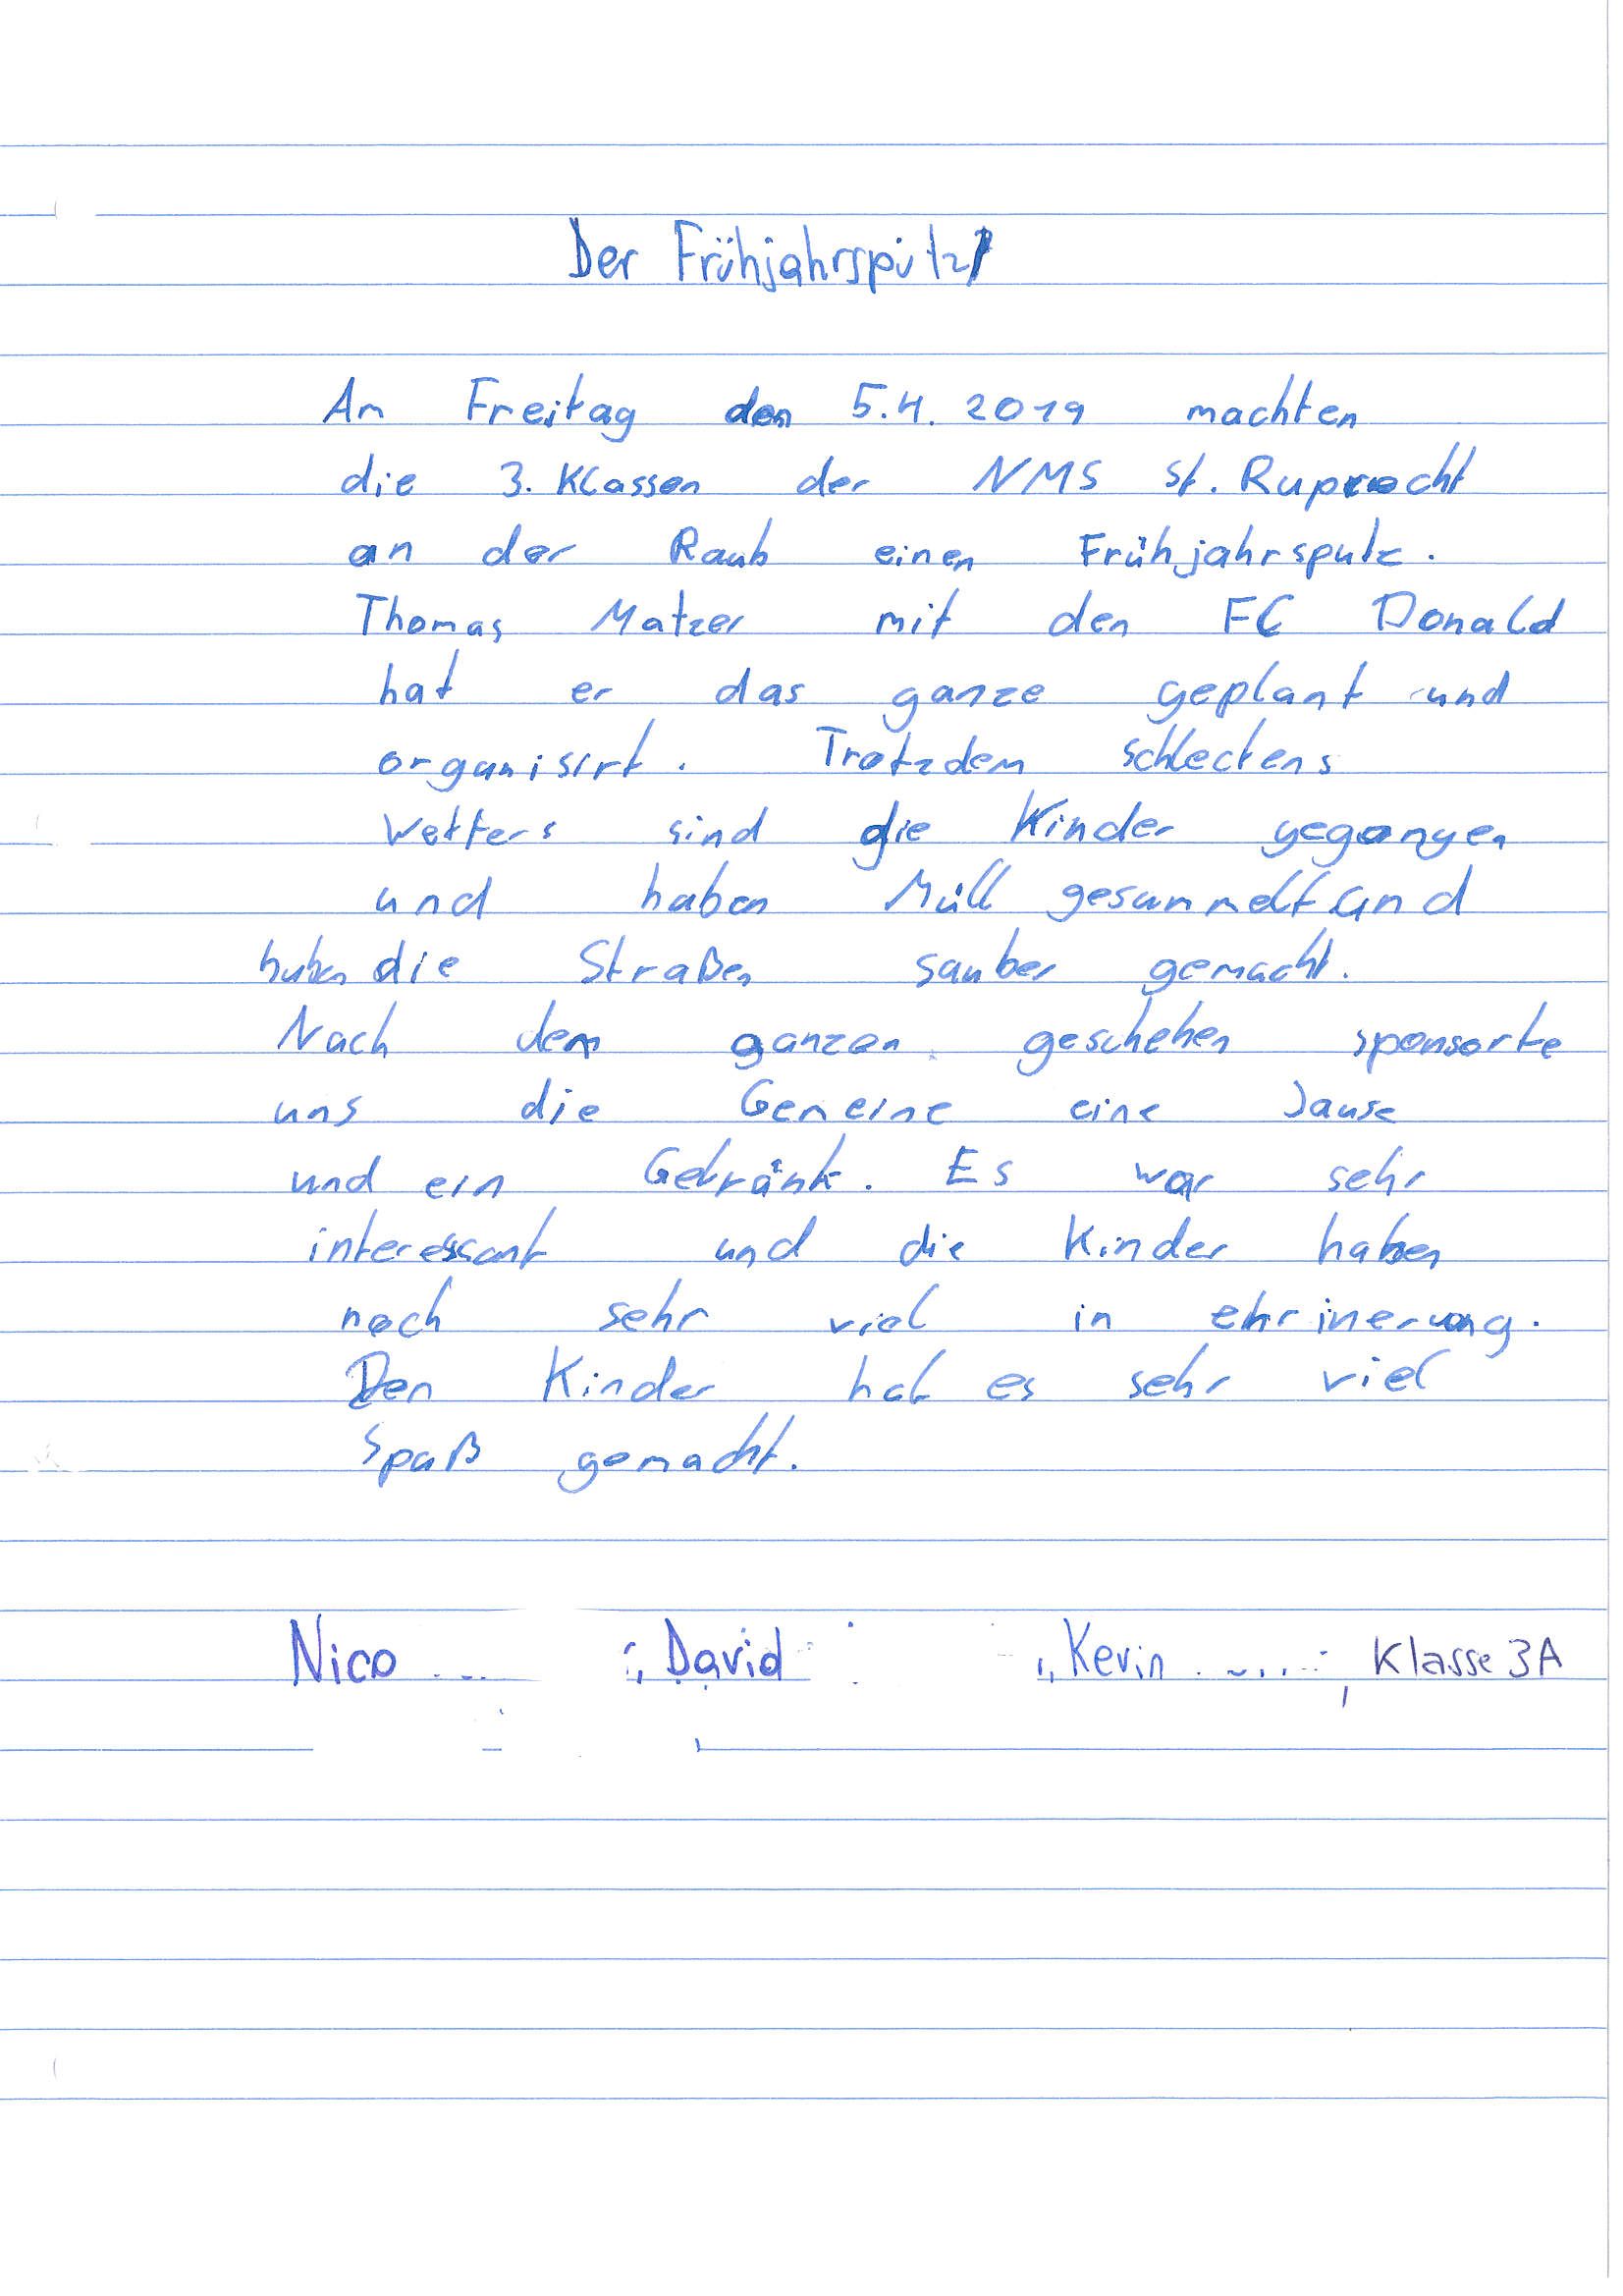 Der Frühjahrsputz
Am Freitag den 5.4. 2019 machten
die 3. Klassen der NMS St. Ruprecht
an der Raab einen Frühjahrsputz.
Thomas Matzer mit den FC Donald
hat er das ganze geplant und
organisirt. Trotzdem schlechtens
Wetters sind die Kinder gegangen
und haben Müll gesammelt und
haben die Straßen sauber gemacht.
Nach dem ganzen geschehen sponsorte
uns die Gemeine eine Jause
und ein Getränk. Es war sehr
interessant und die Kinder haben
noch sehr viel in ehrinerung.
Den Kinder hat es sehr viel
Spaß gemacht.
Nico , David , Kevin , Klasse 3A